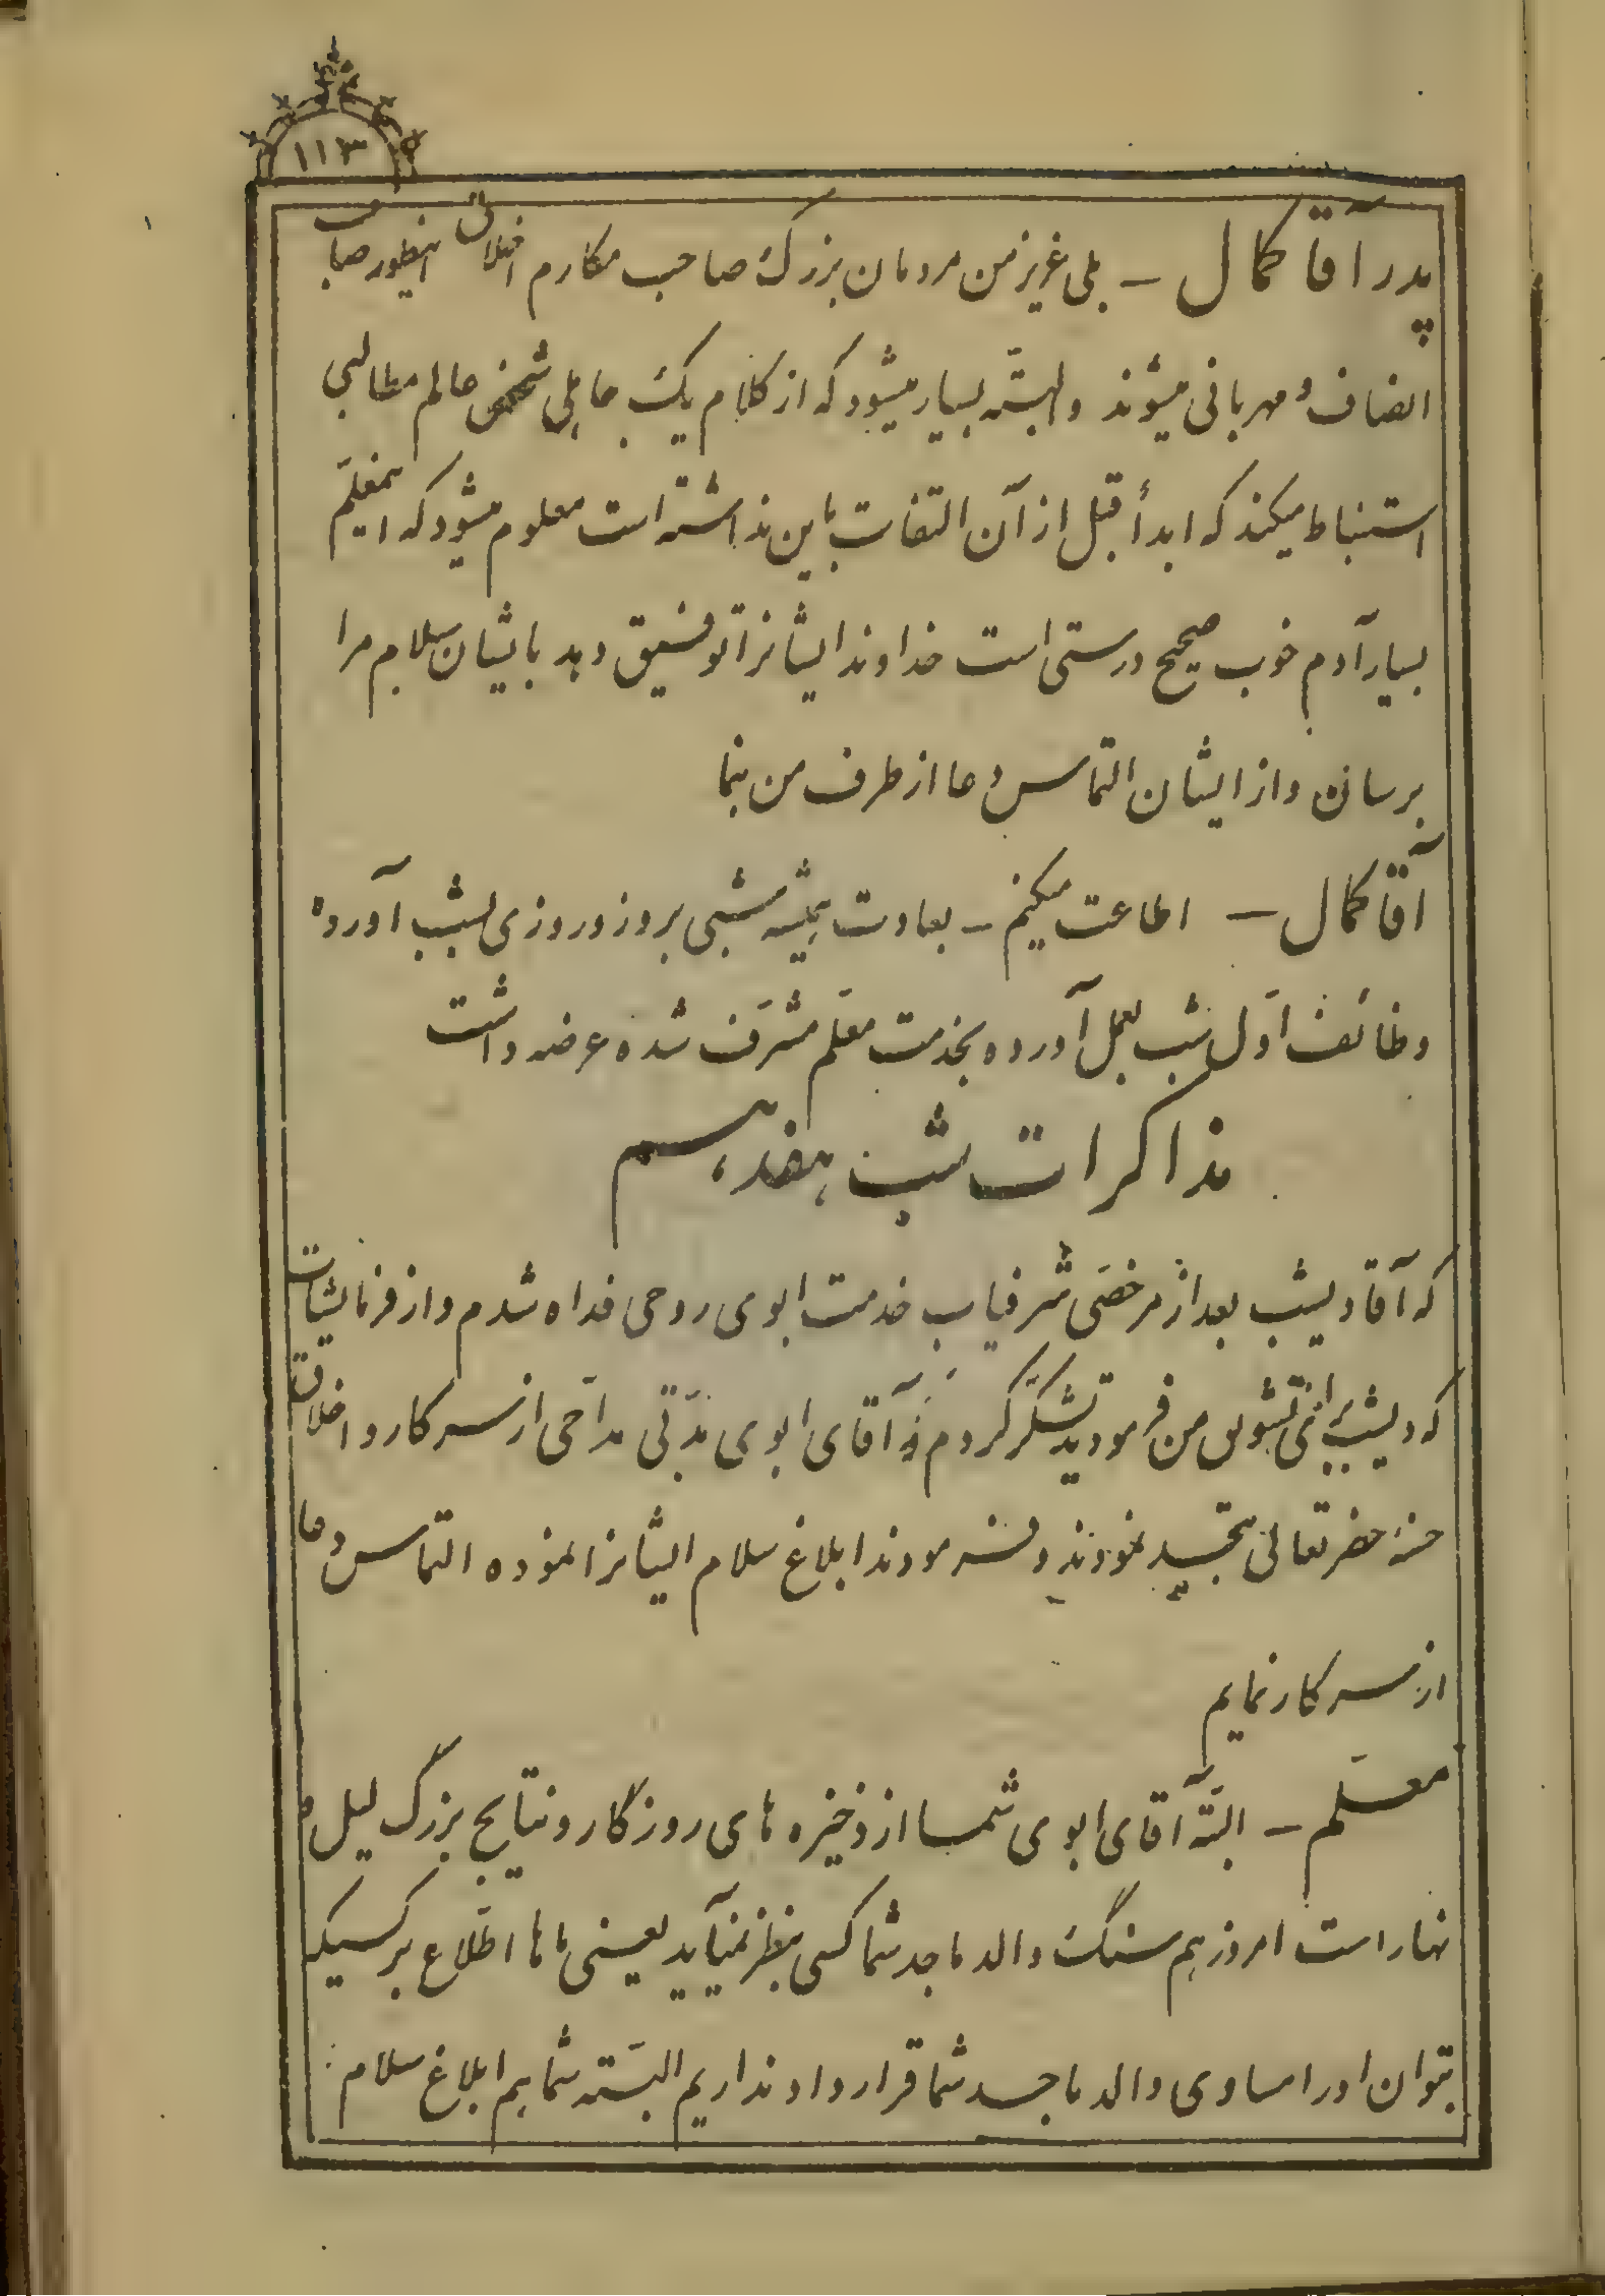 ۱۱۳
پدر آقا کمال – بلی عزیز من مردمان بزرگ صاحب مکارم اخلاق اینطور صاحب
انصاف و مهربانی میشوند و البتّه بسیار میشود که از کلام یک جاهلی شخص عالم مطالبی
استنباط میکند که ابداً قبل از آن التفات باین نداشته است معلوم میشود که این معلّم
بسیار آدم خوب صحیح درستی است خداوند ایشانرا توفیق دهد بایشان سلام مرا
برسان و از ایشان التماس دعا از طرف من بنما
آقا کمال – اطاعت میکنم – بعادت همیشه شبی بروز و روزی بشب آورده
وظائف اوّل شب بعمل آورده بخدمت معلّم مشرّف شده عرضه داشت
مذاکرات شب هفدهم
که آقا دیشب بعد از مرخصّی شرفیاب خدمت ابوی روحی فداه شدم و از فرمایشات
که دیشب برای تشویق من فرمودید تشکّر کردم آقای ابوی مدّتی مدّاحی از سرکار و اخلاق
حسنهٔ حضرتعالی تمجید نمودند و فرمودند ابلاغ سلام ایشانرا نموده التماس دعا
از سرکار نمایم
معلّم – البتّه آقای ابوی شما از ذخیره های روزگار و نتایج بزرگ لیل و
نهار است امروز هم سنگ والد ماجد شما کسی بنظر نمیآید یعنی ماها اطّلاع بر کسیکه
بتوان او را مساوی والد ماجد شما قرار داد نداریم البتّه شما هم ابلاغ سلام